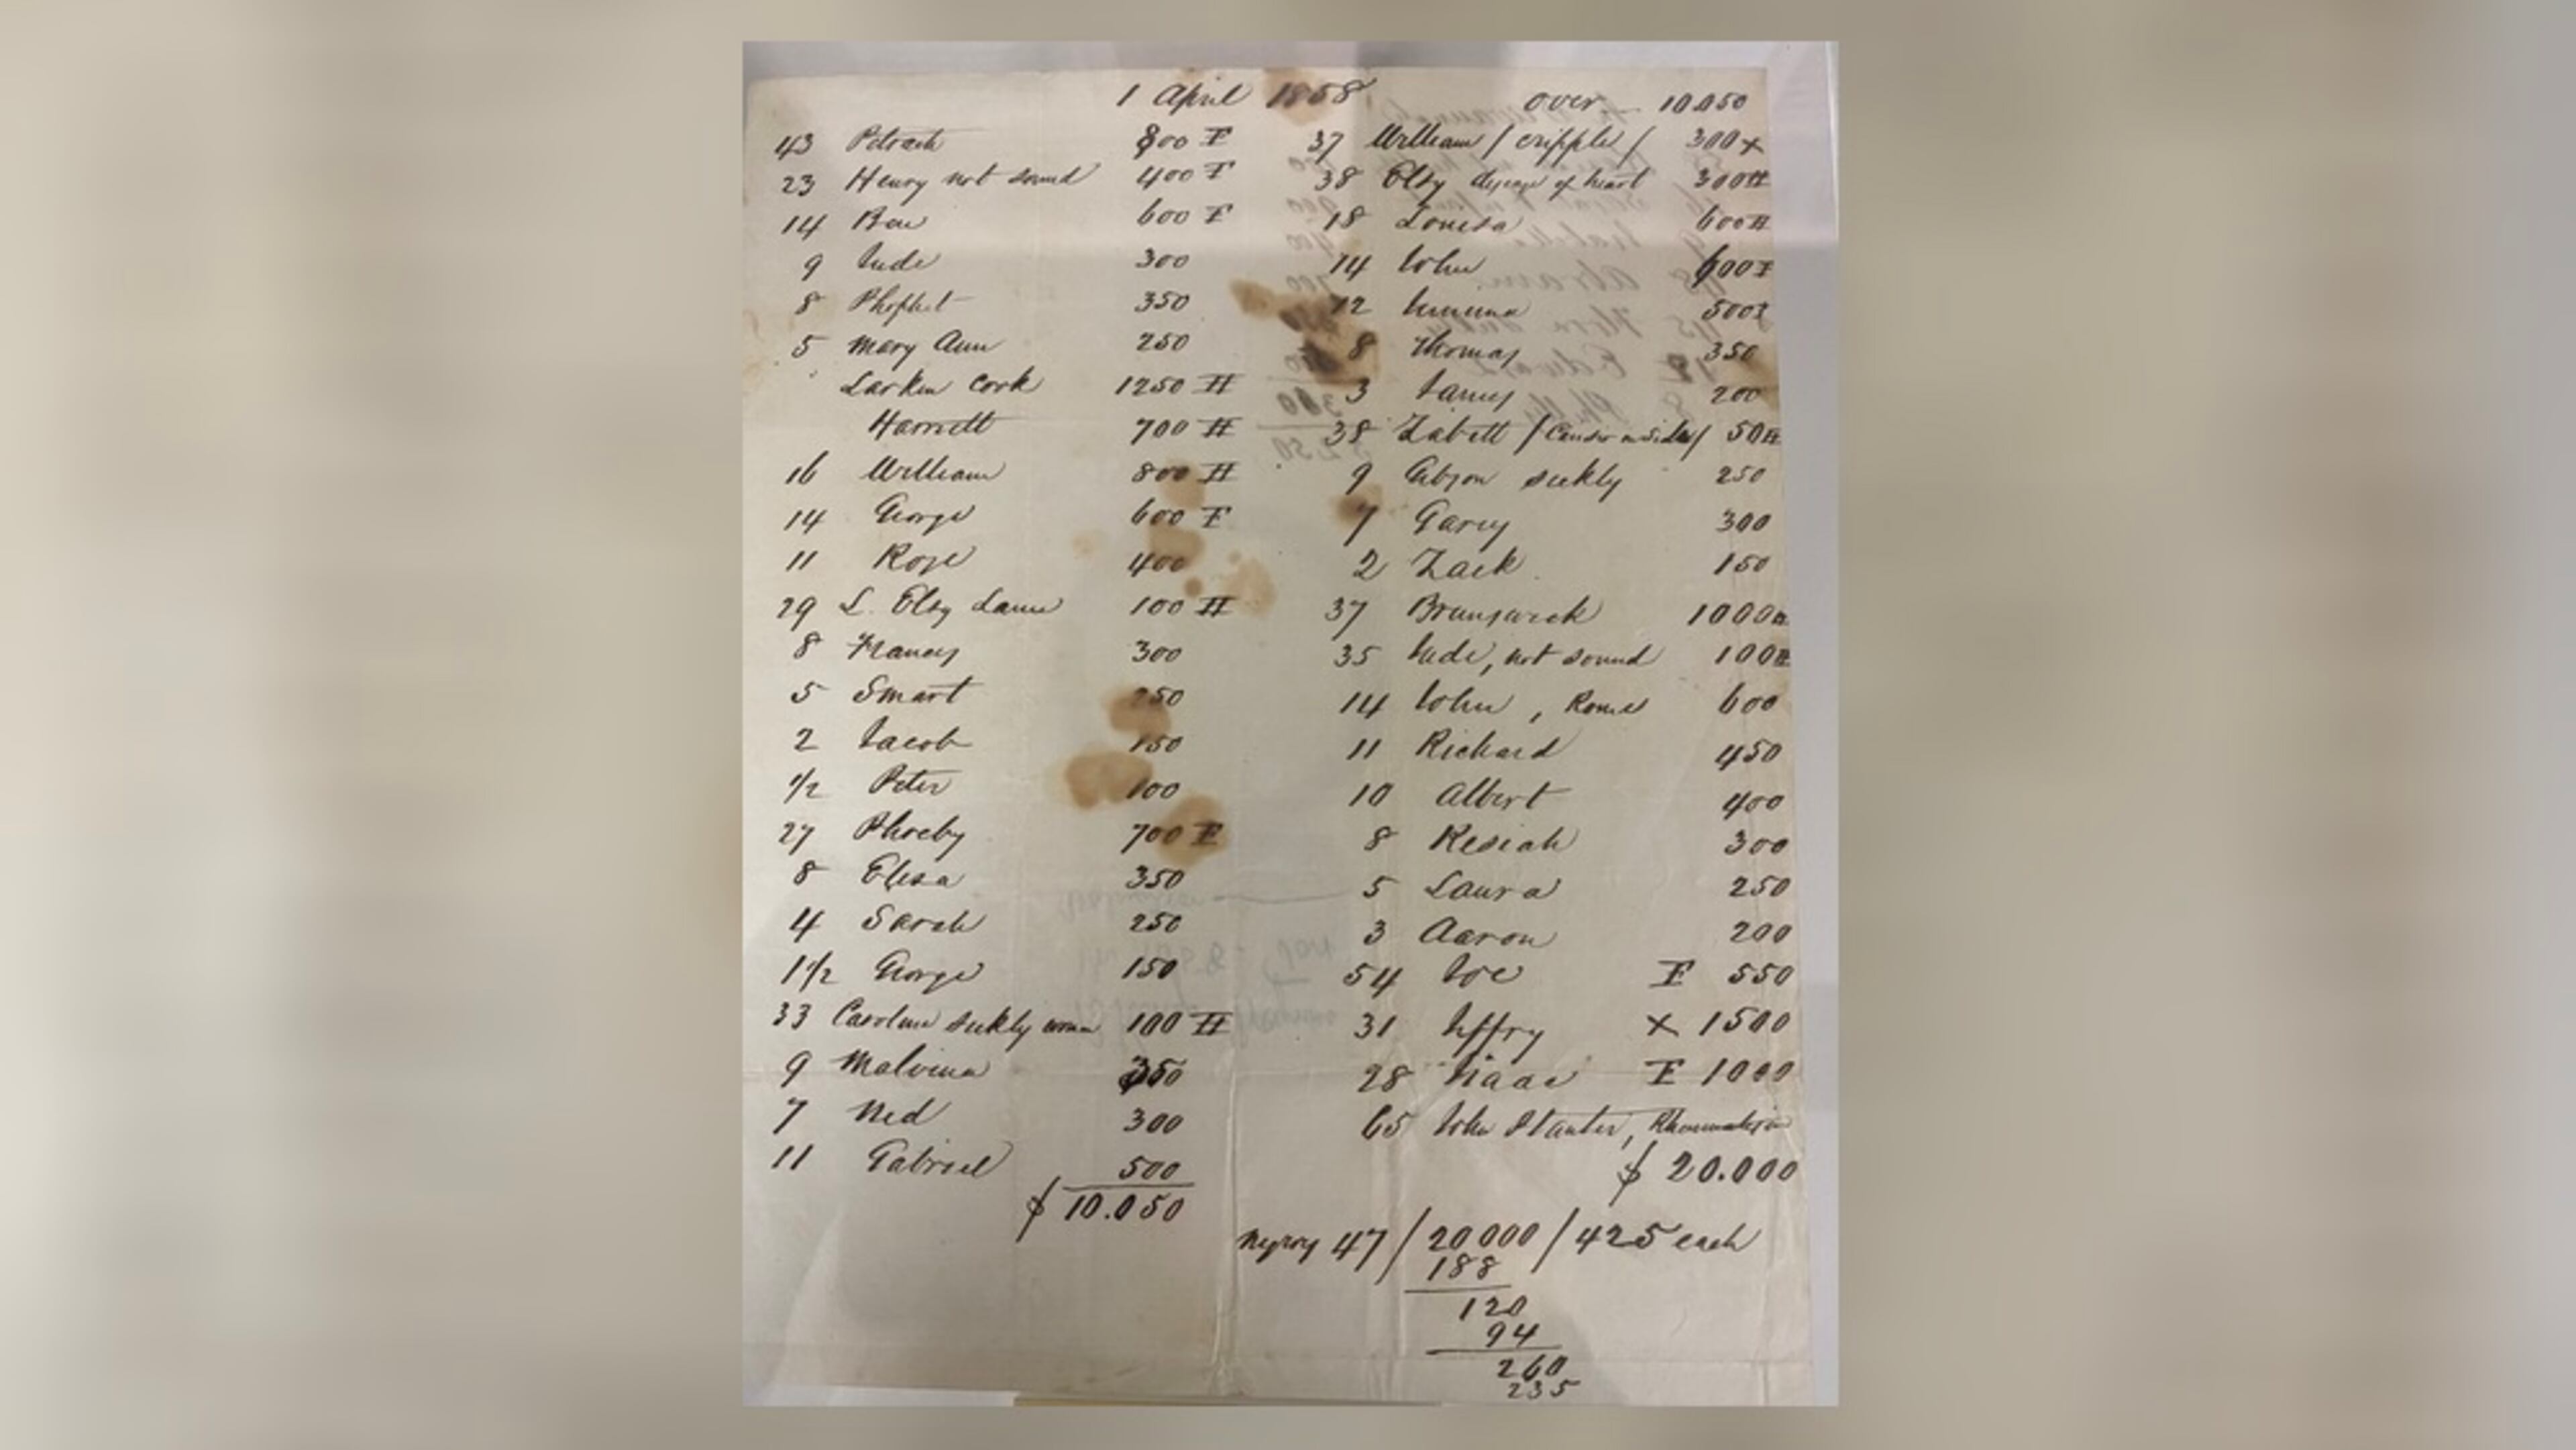 1 April 1858
43 Petrach 800 I
23 Henry not sound 400 I
14 Ben 600 I
9 Jude 300
8 Phophet 350
5 Mary Ann 250
Larkin Cook 1250 II
Harriett 700 II
16 William 800 II
14 George 600 I
11 Rose 400
29 L. Elsy Lame 100 II
8 Frances 300
5 Smart 250
2 Jacob 150
1/2 Peter 100
27 Phoeby 700 I
8 Elisa 350
4 Sarah 250
1 1/2 George 150
33 Caroline sickly woman 100 II
9 Malvina 350
7 Ned 300
11 Gabriel 500
$ 10.050
over 10050
37 William / cripple / 300 x
38 Elsy disease of heart 300 II
18 Louisa 600 II
14 John 600 I
12 500 I
8 Thomas 350
3 James 200
38 Zabett / Cancer in side / 50 II
9 Gibson sickly 250
7 Garey 300
2 Zack 150
37 Brunswick 1000 II
35 Jude, not sound 100 II
14 John, Rome 600
11 Richard 450
10 Albert 400
8 Kesiah 300
5 Laura 250
3 Aaron 200
54 Joe I 550
31 Jeffry x 1500
28 Isaac I 1000
65 John Planter, Rheumatism
$ 20.000
Negroes 47 / 20000 / 425 each
188
120
94
260
235